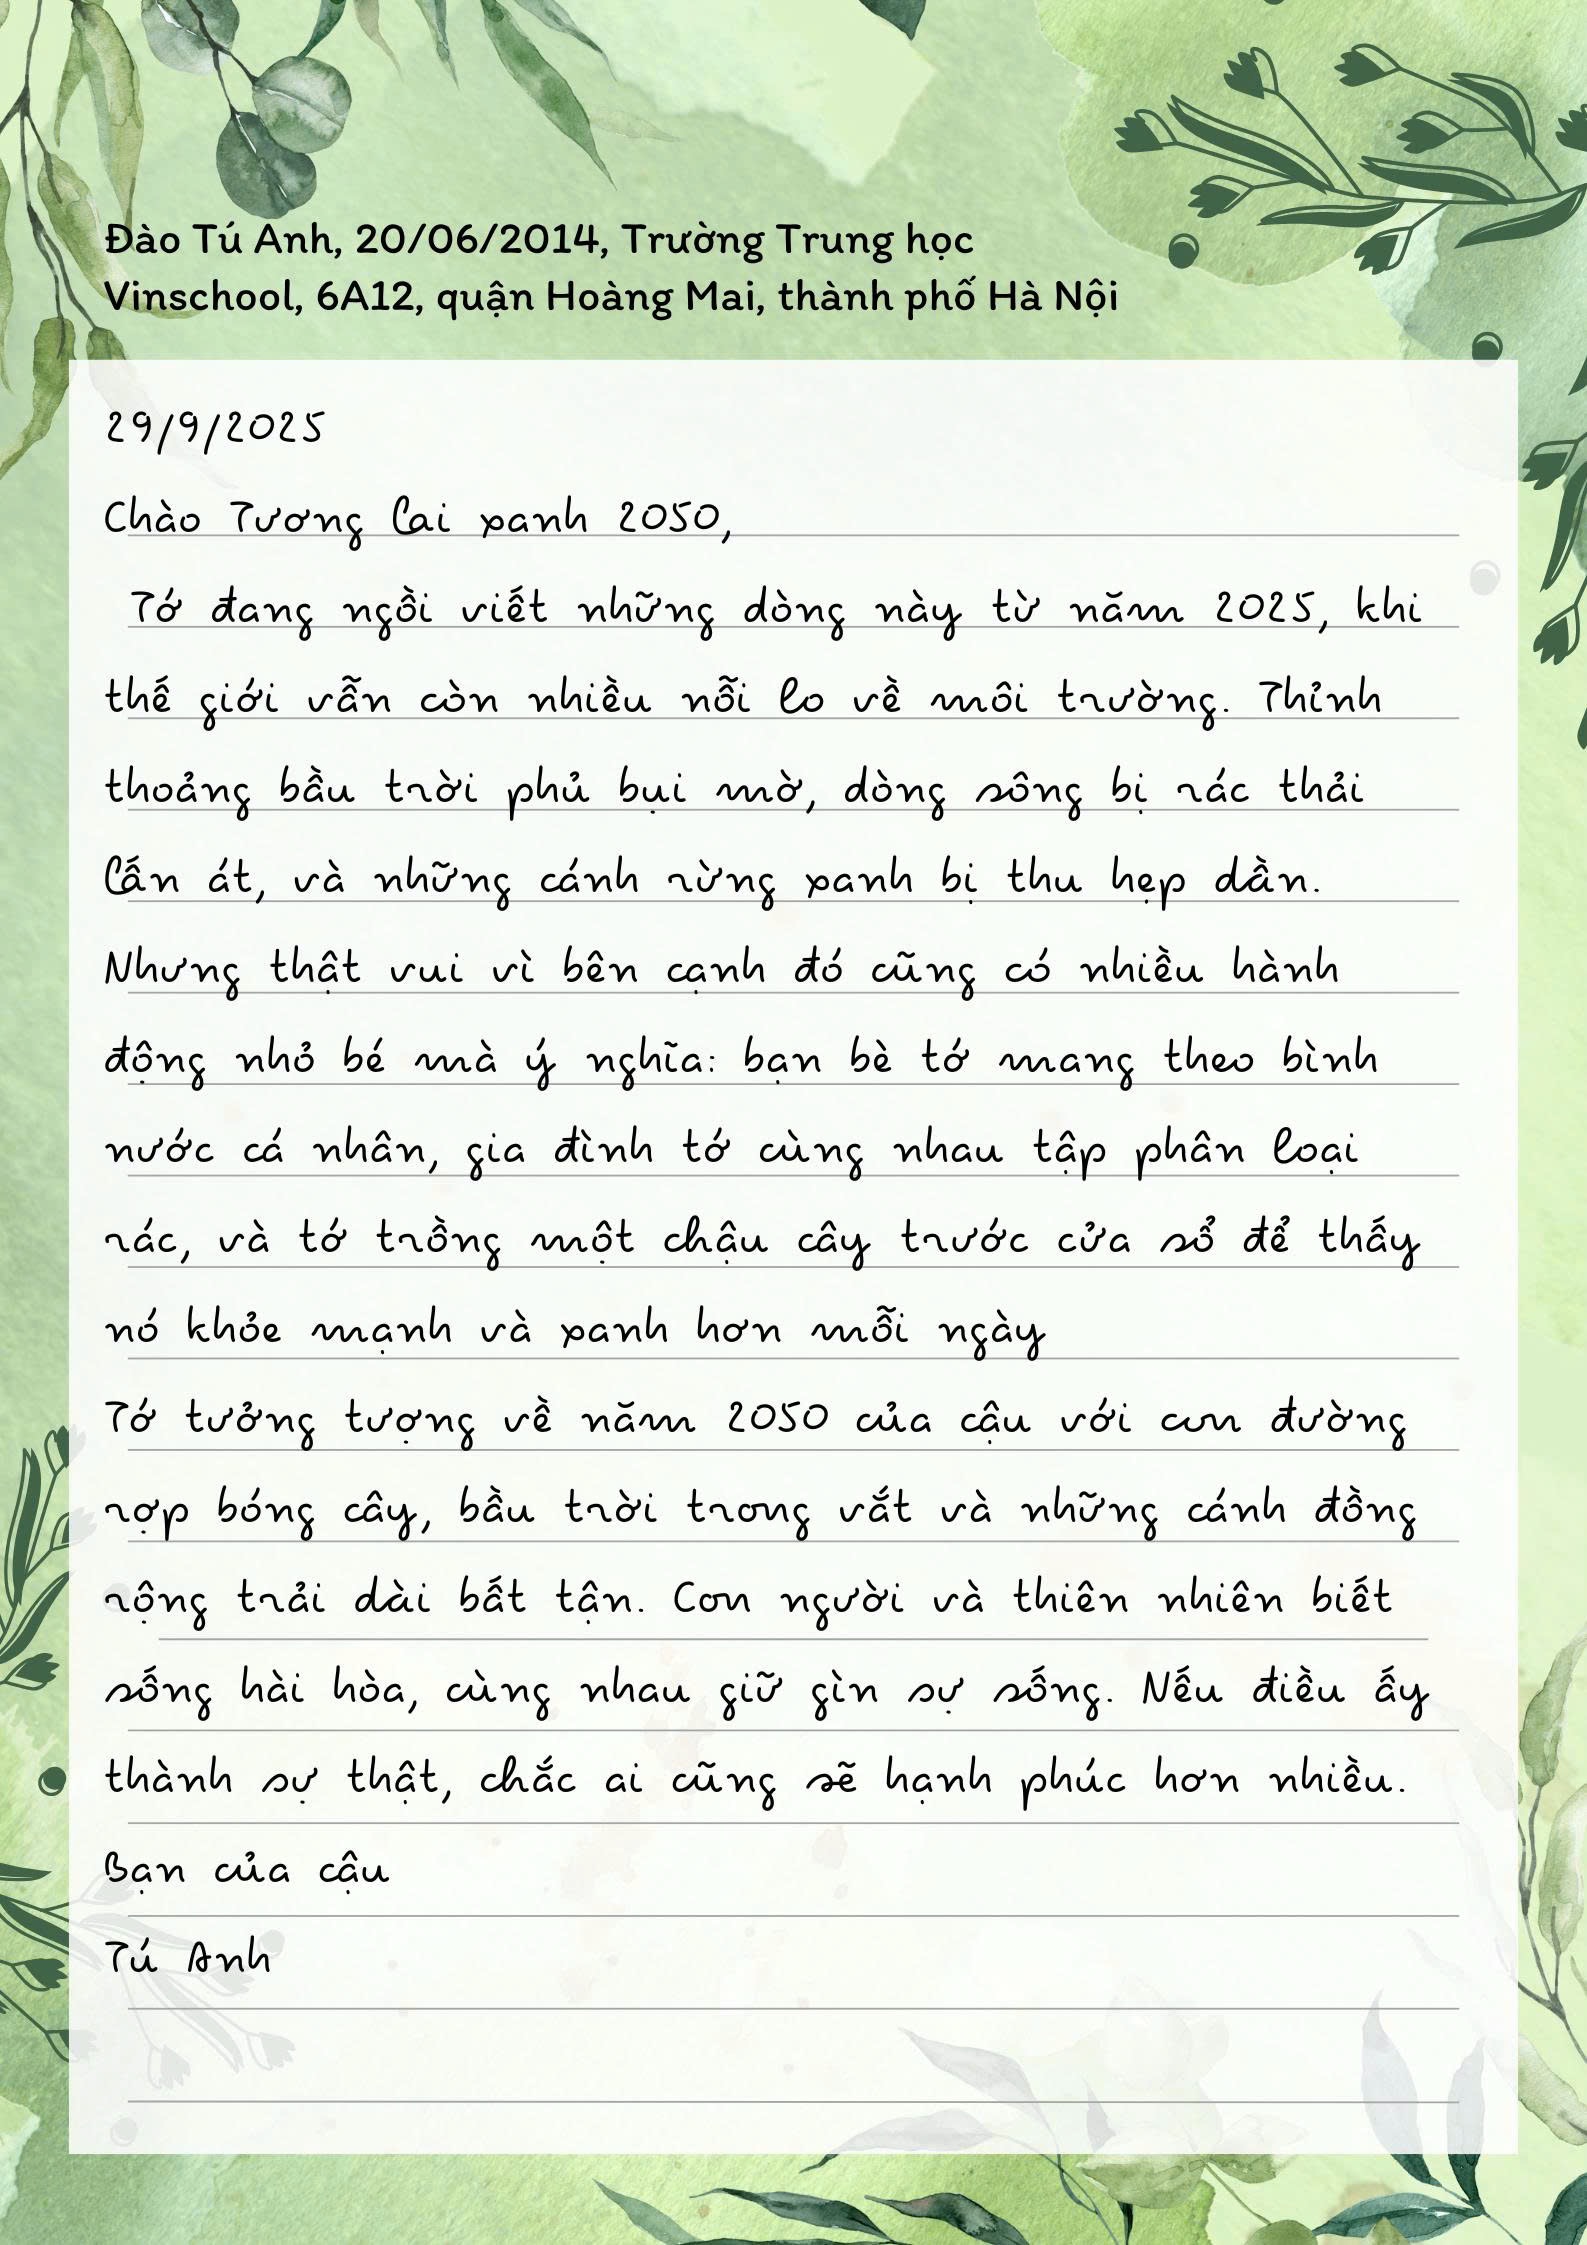 Đào Tú Anh, 20/06/2014, Trường Trung học
Vinschool, 6A12, quận Hoàng Mai, thành phố Hà Nội
29/9/2025
Chào Tương lai xanh 2050,
Tớ đang ngồi viết những dòng này từ năm 2025, khi
thế giới vẫn còn nhiều nỗi lo về môi trường. Thỉnh
thoảng bầu trời phủ bụi mờ, dòng sông bị rác thải
lấn át, và những cánh rừng xanh bị thu hẹp dần.
Nhưng thật vui vì bên cạnh đó cũng có nhiều hành
động nhỏ bé mà ý nghĩa: bạn bè tớ mang theo bình
nước cá nhân, gia đình tớ cùng nhau tập phân loại
rác, và tớ trồng một chậu cây trước cửa sổ để thấy
nó khỏe mạnh và xanh hơn mỗi ngày
Tớ tưởng tượng về năm 2050 của cậu với con đường
rợp bóng cây, bầu trời trong vắt và những cánh đồng
rộng trải dài bất tận. Con người và thiên nhiên biết
sống hài hòa, cùng nhau giữ gìn sự sống. Nếu điều ấy
thành sự thật, chắc ai cũng sẽ hạnh phúc hơn nhiều.
Bạn của cậu
Tú Anh